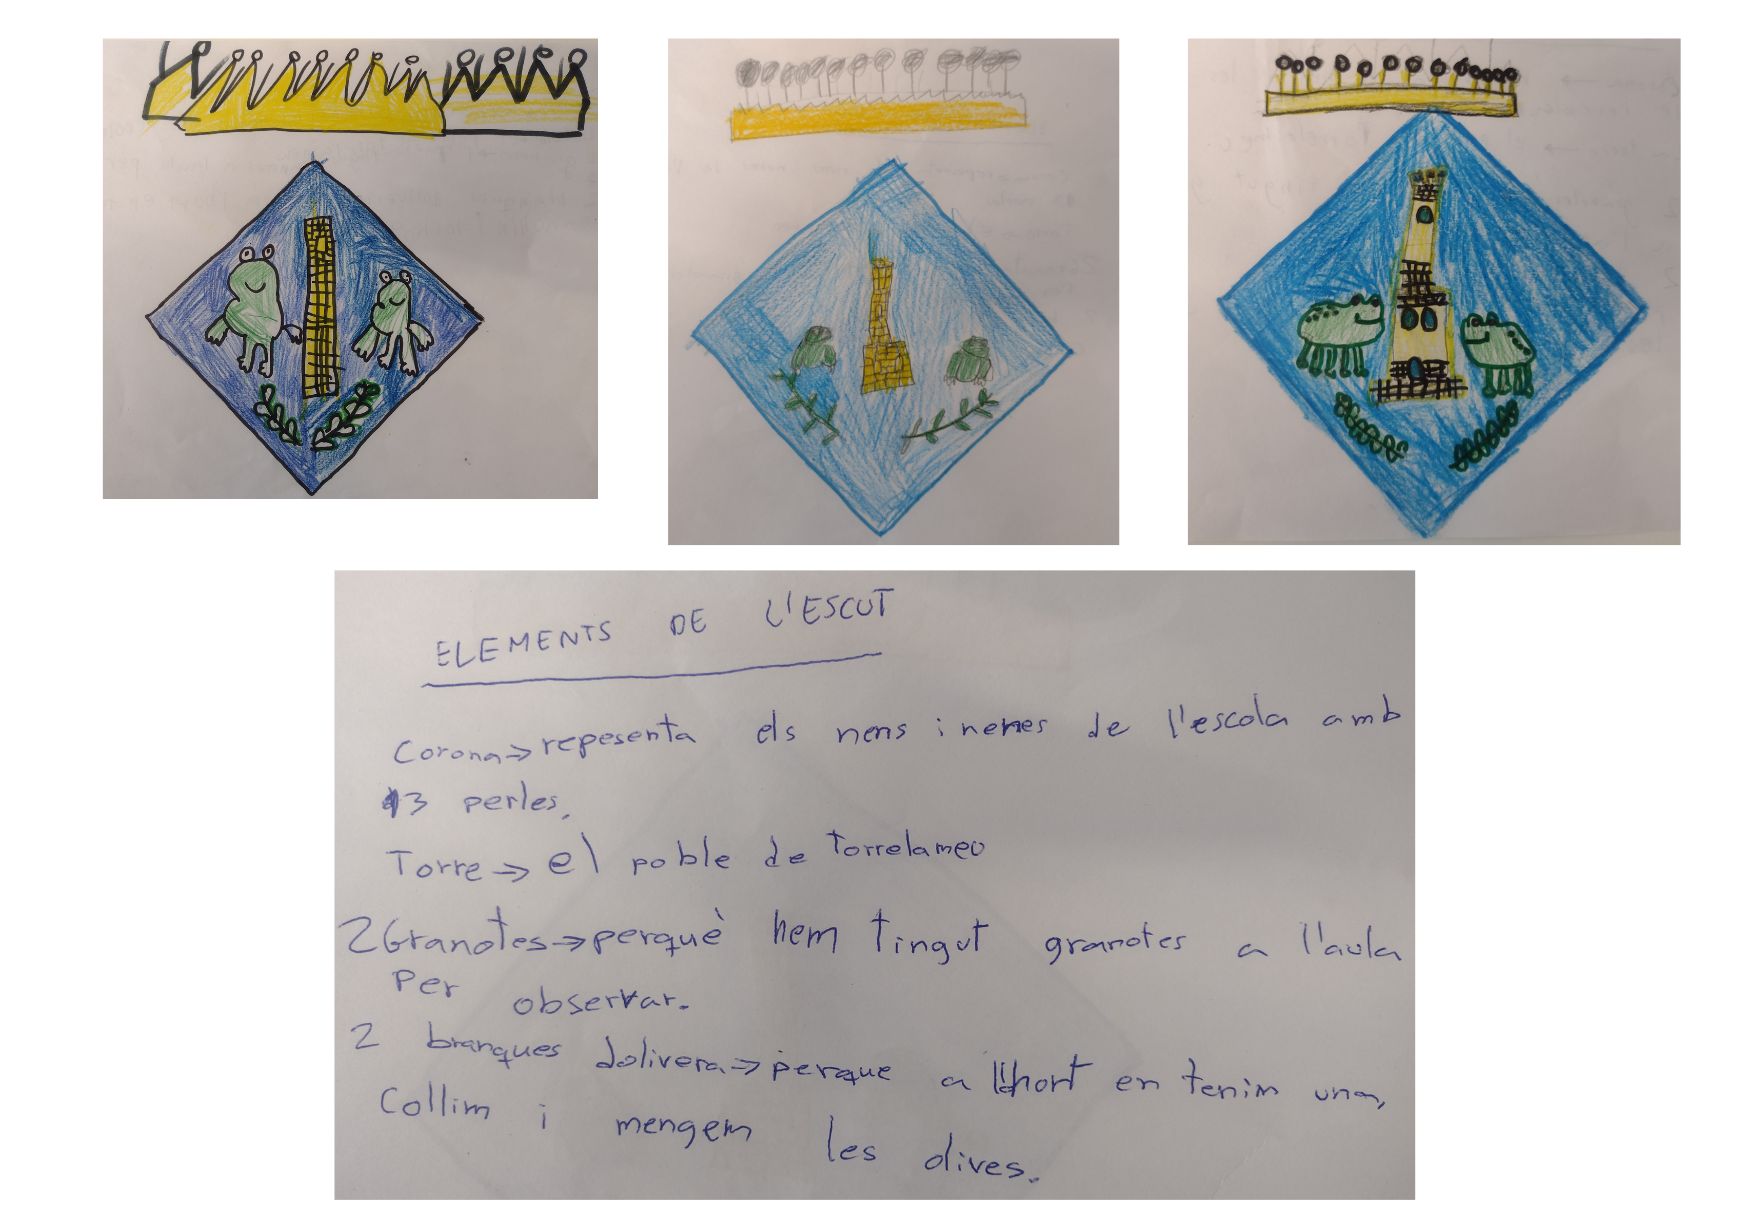 ELEMENTS DE L'ESCUT
Corona→repesenta els nens i nenes de l'escola amb
13 perles.
Torre→ el poble de Torrelameu
2 Granotes→perquè hem tingut granotes a l'aula
Per observar.
2 branques dolivera→perque a l'hort en tenim una,
Collim i mengem les olives.